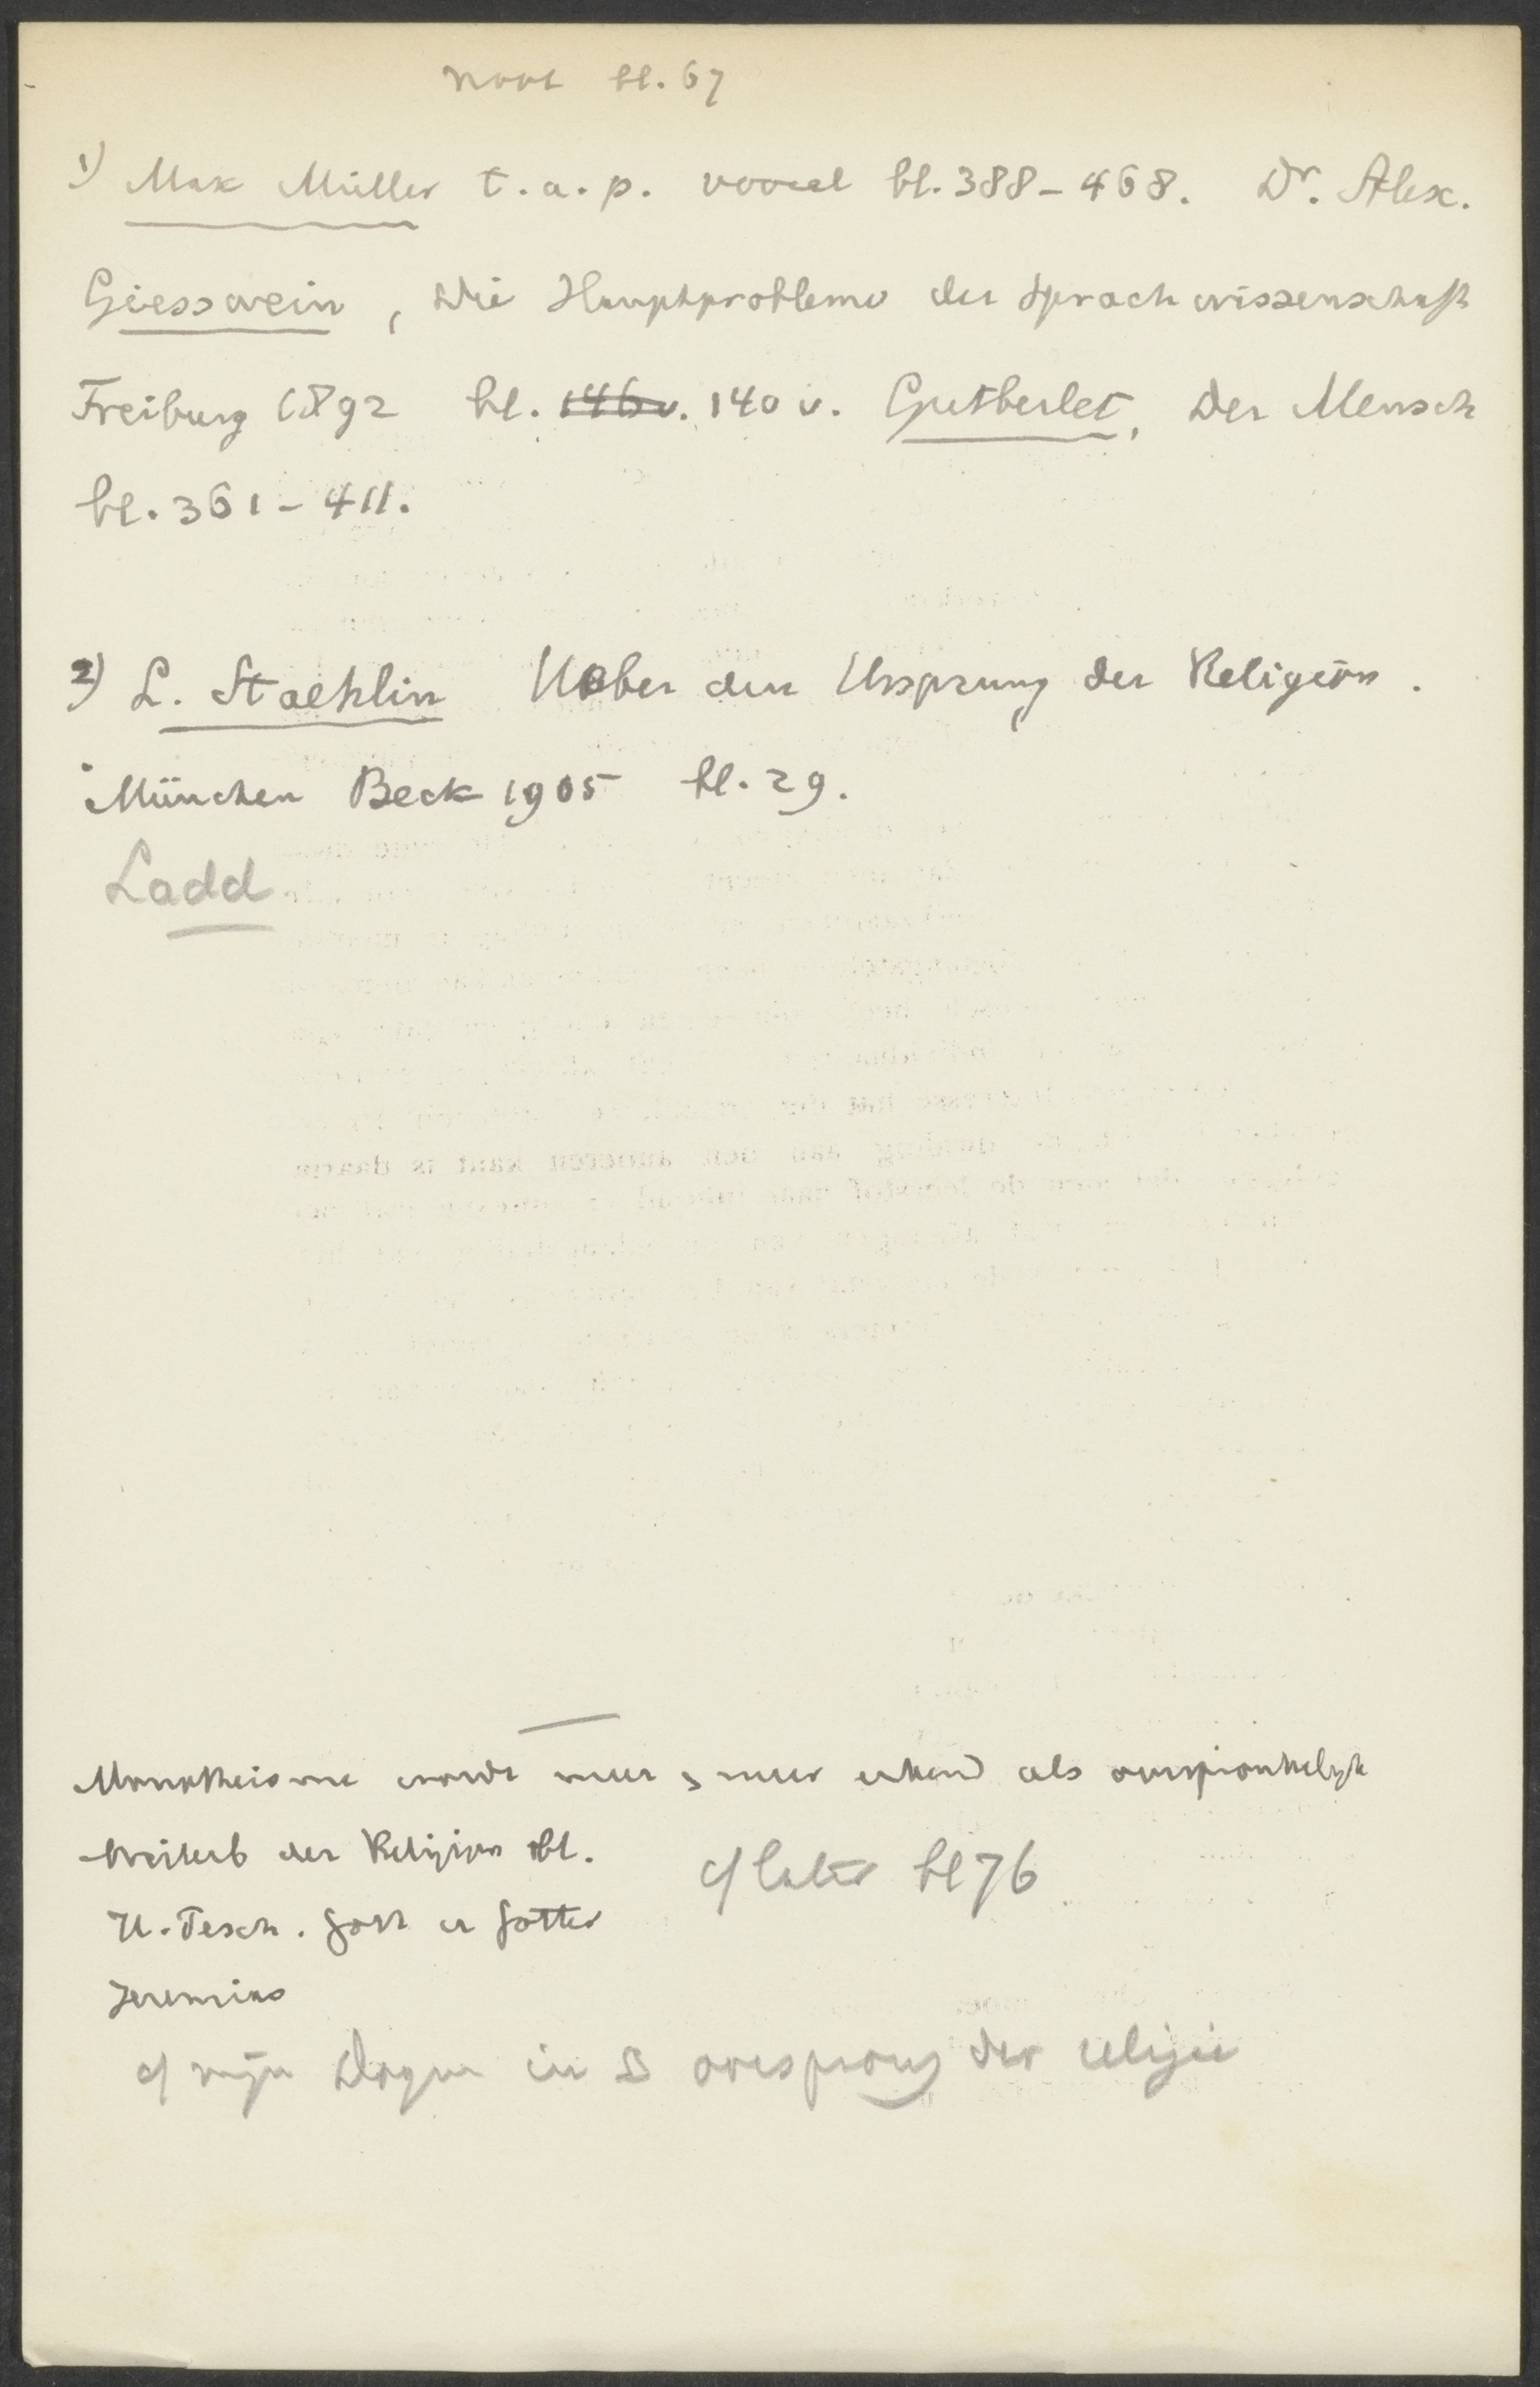 Noot bl. 67
1) Max Müller t.a.p. vooral bl. 388-468. Dr. Alex.
Giesswein, Die Hauptprobleme der Sprachwissenschaft
Freiburg 1892 bl. 146 v. 140 v. Gutberlet, Der Mensch
bl. 361-411.
2) L. Staehlin Ueber den Ursprung der Religion.
München Beck 1905 bl. 29.
Ladd
Monotheisme wordt meer & meer erkend als oorspronkelijk
der Religion bl.
cf later bl 76
Tesch. Gott u Götter
Jeremias
cf mijn Dogm in oorsprong der religie